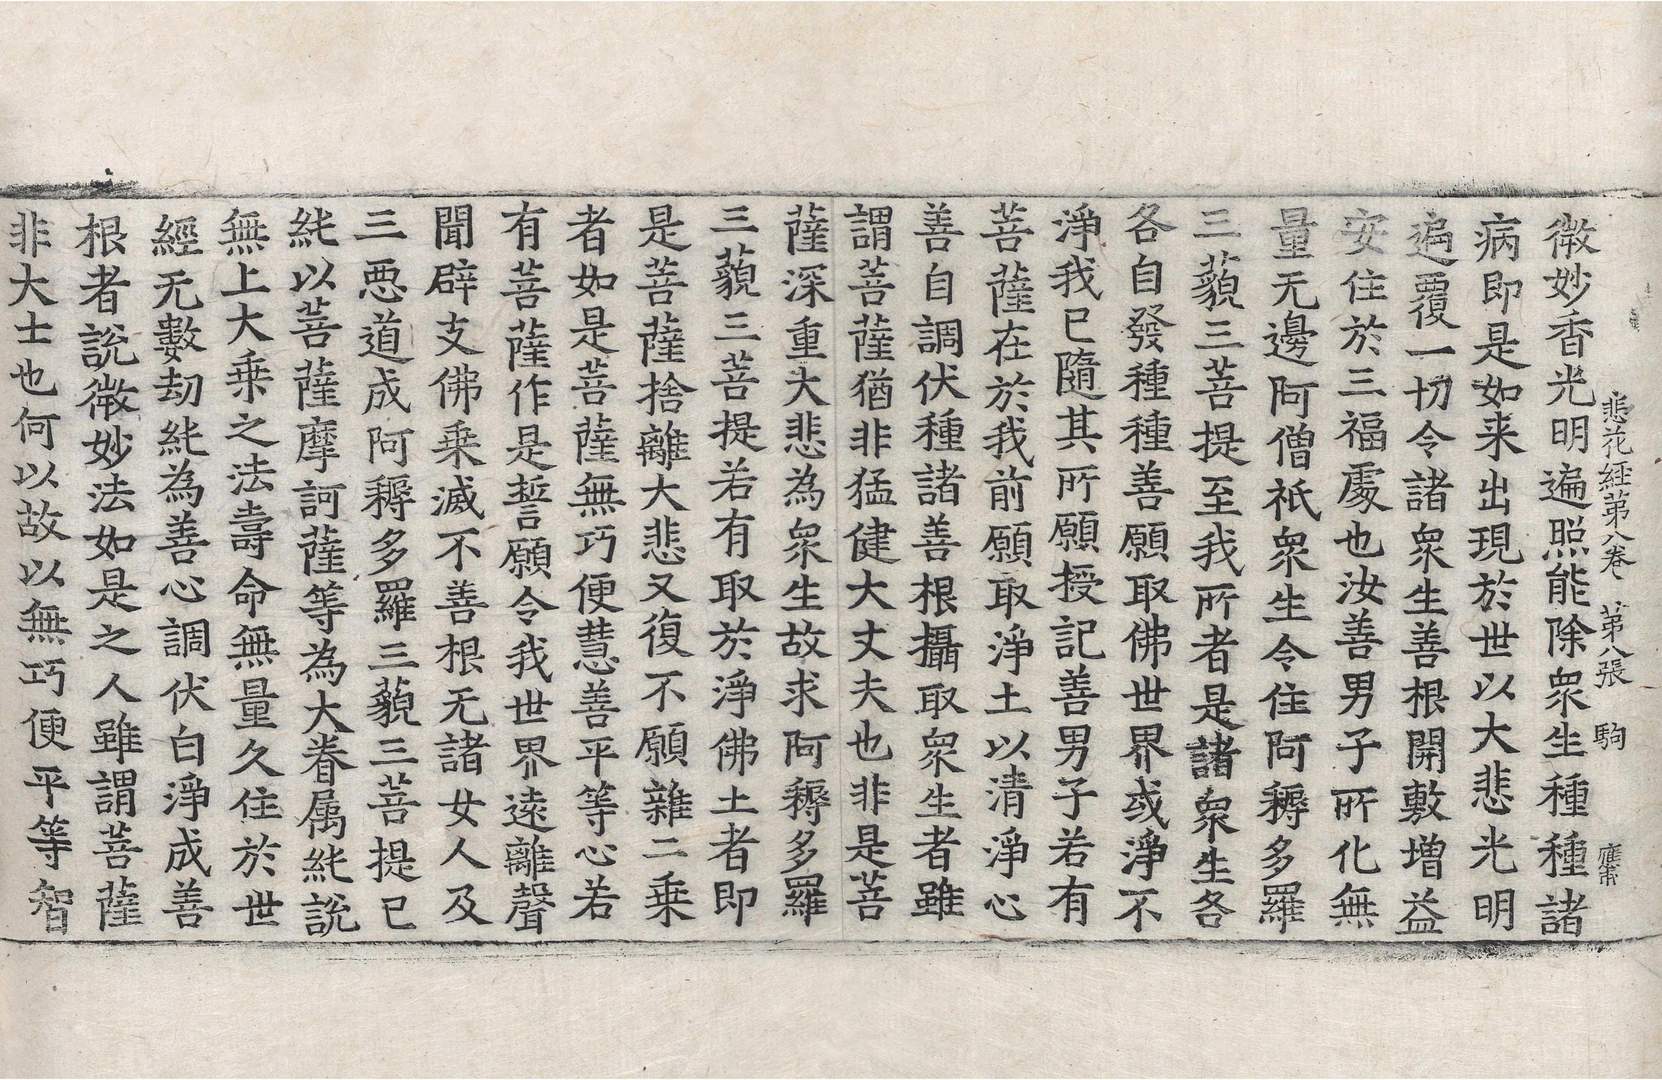 悲花經第八卷 第八張 駒
微妙香光明遍照能除衆生種種諸
病即是如来出現於世以大悲光明
遍覆一切令諸衆生善根開敷增益
安住於三福處也汝善男子所化無
量无邊阿僧祇衆生令住阿耨多羅
三藐三菩提至我所者是諸衆生各
各自發種種善願取佛世界或淨不
淨我已隨其所願授記善男子若有
菩薩在於我前願取淨土以清淨心
善自調伏種諸善根攝取衆生者雖
謂菩薩猶非猛健大丈夫也非是菩
薩深重大悲為衆生故求阿耨多羅
三藐三菩提若有取於淨佛土者即
是菩薩捨離大悲又復不願雜二乗
者如是菩薩無巧便慧善平等心若
有菩薩作是誓願令我世界遠離聲
聞辟支佛乗滅不善根无諸女人及
三悪道成阿耨多羅三藐三菩提已
純以菩薩摩訶薩等為大眷属純說
無上大乗之法壽命無量久住於世
經无數劫純為善心調伏白淨成善
根者說微妙法如是之人雖謂菩薩
非大士也何以故以無巧便平等智